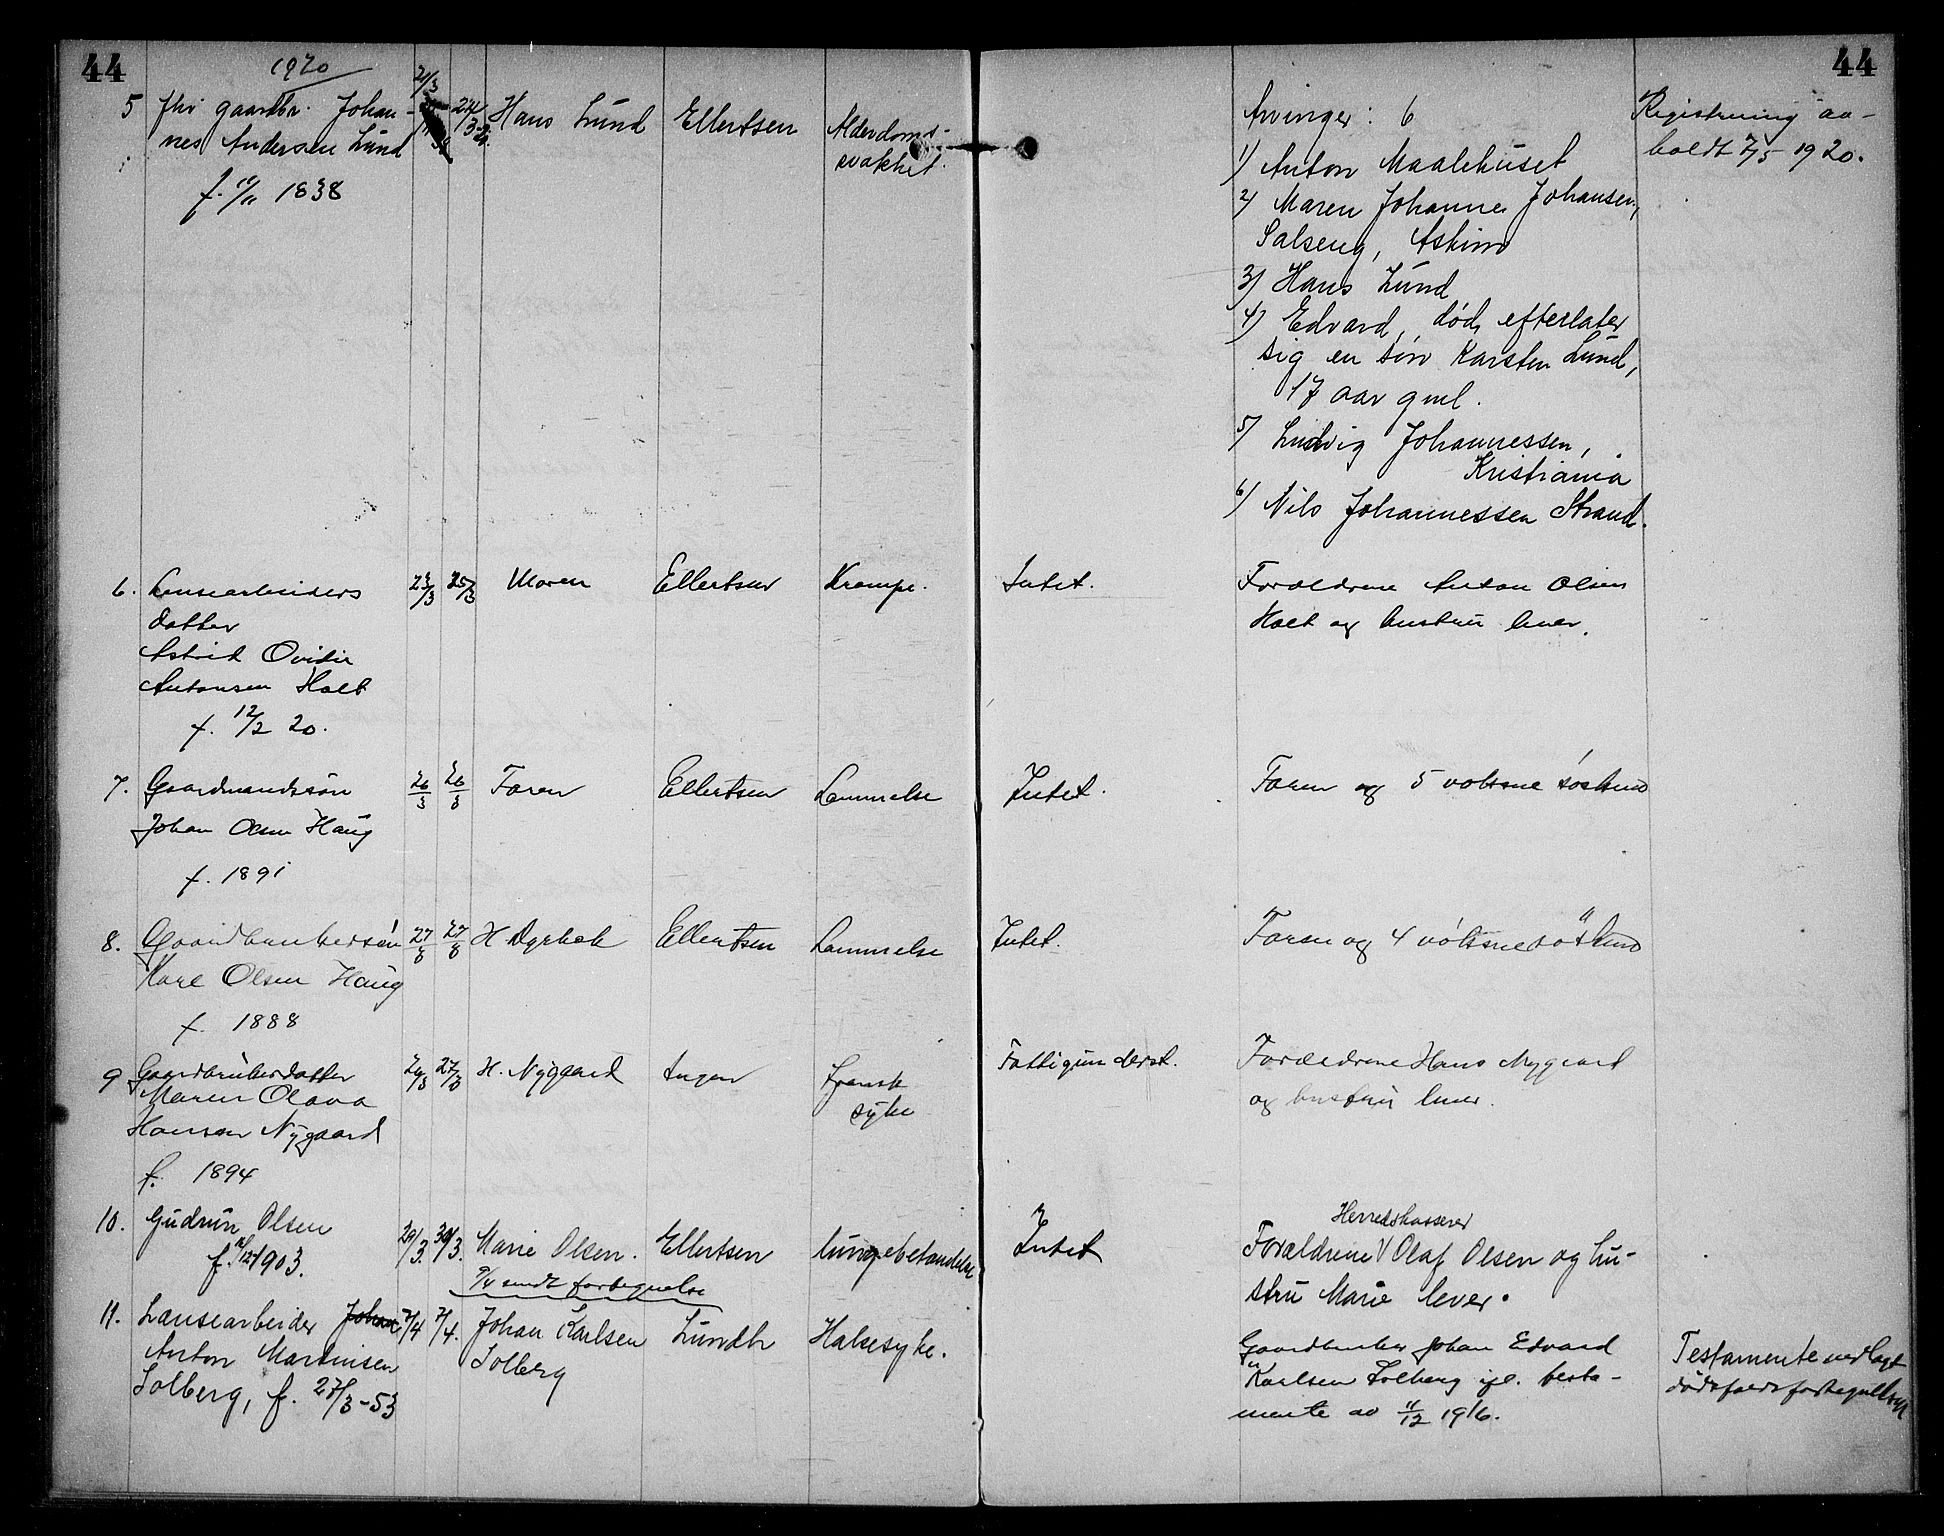 44
44
1920
5 fhv gaardbr. Johan-
nes Andersen Lund
f. 10/11 1838
21/3
24/3-20.
Hans Lund
Ellertsen
Alderdoms-
svakhet.
Arvinger: 6
1) Anton Maalehuset
2) Maren Johanne Johansen,
Salseng, Askim
3) Hans Lund
4) Edvard, død, efterlater
sig en søn Karsten Lund,
17 aar gml.
5) Ludvig Johannessen,
Kristiania
6) Nils Johannessen Strand.
Registrering av-
holdt 7/5 1920.
6. Lensearbeiders
datter
Astrid Ovidie
Antonsen Holt
f. 12/2 20.
23/3
25/3
Moren
Ellertsen
Krampe.
Intet.
Forældrene Anton Olsen
Holt og hustru lever.
7. Gaardmandssøn
Johan Olsen Haug
f. 1891
26/3
26/3
Faren
Ellertsen
Lammelse
Intet.
Faren og 5 voksne søskend
8. Gaardbrukersøn
Karl Olsen Haug
f. 1888
27/3
27/3
H Dyrbek
Ellertsen
Lammelse
Intet.
Faren og 4 voksne søskend
9 Gaardbrukerdatter
Maren Olava
Hansen Nygaard
f. 1894
27/3
H. Nygaard
Ingen
Spansk
syke
Fattigunderst.
Forældrene Hans Nygaard
og hustru lever.
10. Gudrun Olsen
f. 12/12 1903.
29/3.
30/3.
Marie Olsen.
Ellertsen
lungebetændelse
Intet
Herredskasserer
Forældrene V Olaf Olsen og hu-
stru Marie lever.
9/4 sendt fortegnelse
11. Lensearbeider Johan
Anton Martinsen
Solberg, f. 27/3-53
7/4
7/4.
Johan Karlsen
Solberg
Lundh
Halsesyke.
Gaardbruker Johan Edvard
Karlsen Solberg ifl. testa-
mente av 11/12 1916.
Testamente vedlagt
dødsfaldsfortegnelsen